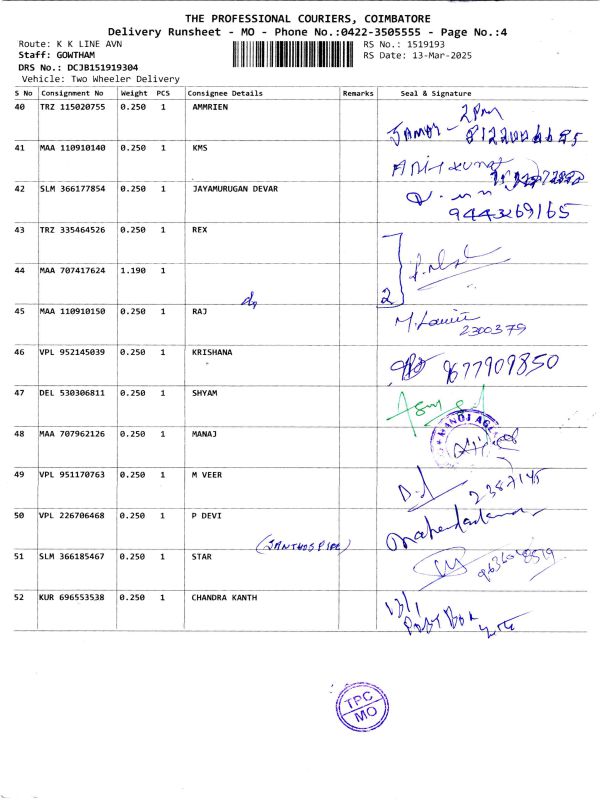 THE PROFESSIONAL COURIERS, COIMBATORE
Delivery Runsheet - MO - Phone No.:0422-3505555 - Page No.:4
Route: K K LINE AVN RS No.: 1519193
Staff: GOWTHAM RS Date: 13-Mar-2025
DRS No.: DCJB151919304
Vehicle: Two Wheeler Delivery
S No Consignment No Weight PCS Consignee Details Remarks Seal & Signature
40 TRZ 115020755 0.250 1 AMMRIEN 2pm
41 MAA 110910140 0.250 1 KMS
42 SLM 366177854 0.250 1 JAYAMURUGAN DEVAR
9443269165
43 TRZ 335464526 0.250 1 REX
44 MAA 707417624 1.190 1 2
45 MAA 110910150 0.250 1 RAJ
2300379
46 VPL 952145039 0.250 1 KRISHANA 9677909850
47 DEL 530306811 0.250 1 SHYAM
48 MAA 707962126 0.250 1 MANAJ
49 VPL 951170763 0.250 1 M VEER 2387145
50 VPL 226706468 0.250 1 P DEVI
51 SLM 366185467 0.250 1 STAR
52 KUR 696553538 0.250 1 CHANDRA KANTH
TPC
MO